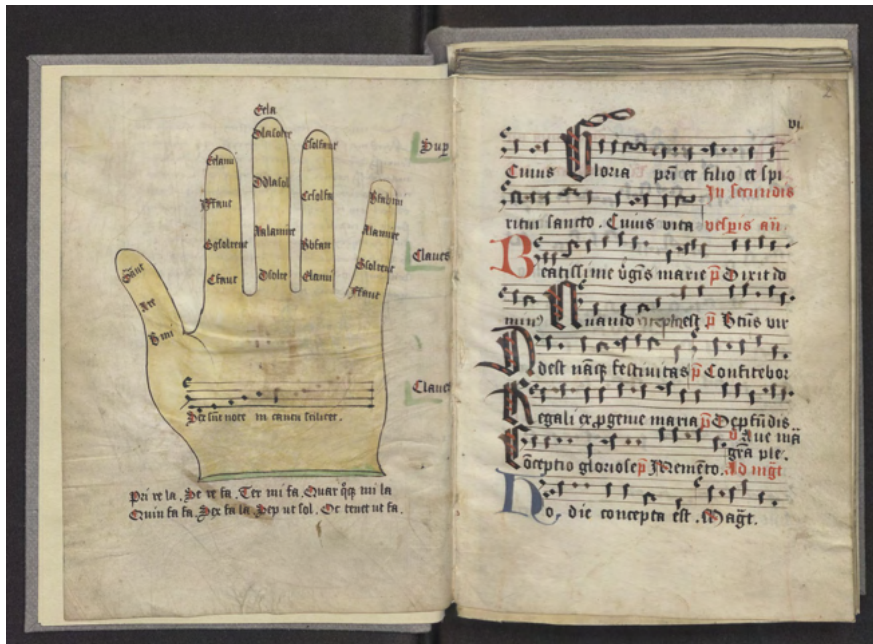 Eela
Dlasolre
Csolfaut
Eelami
Bfabmi
Ddlasol
Ffaut
Ccsolfa
Aalamire
Alamire
Ggsolreut
Bbfami
Gsolreut
Cfaut
Dsolre
Elami
Ffaut
Gaut
Are
Bmi
Sex sūt note in cantu scilicet.
Pri re la. Se re fa. Ter mi fa. Quar qq̄ mi la
Quin fa fa. Sex fa la Sep ut sol. Oc tenet ut fa.
Sup
Claues
Claues
2
vi
Cuius Gloria pr̄i et filio et spi
In secundis
ritui sancto. Cuius vita vesp̄is an̄.
Beatissime v̄gīs marie p̄ Dixit do
minꝰ p̄ Btūs vir
Adest nāqꝫ festiuitas p̄ Confitebor
Regali ex ꝓgenie maria p̄ De ꝓfūdis
Aue mā
gr̄a ple.
Cōceptio gloriose p̄ Memēto. Ad mḡt
Ho, die concepta est. Mag̅t.